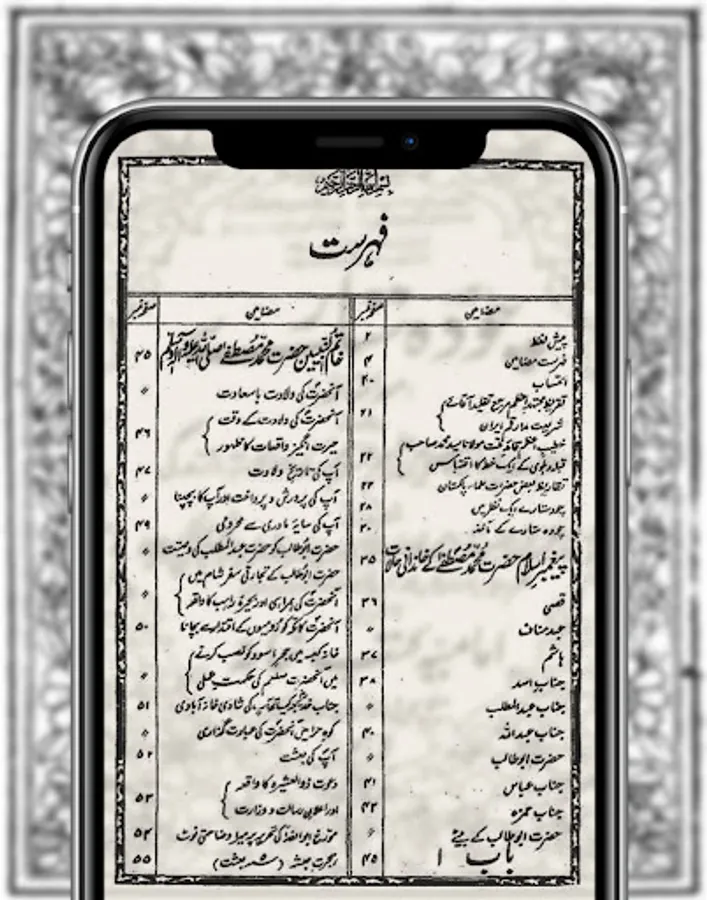 بسم اللہ الرحمن الرحیم
فہرست
مضامین
صفحہ نمبر
پیش لفظ ۲
فہرست مضامین ۴
انتساب ۲۰
۲۱
شریعت مدار قم ایران
۲۲
تقاریظ بعض حضرات علماء پاکستان ۲۳
چودہ ستارے ایک نظر میں ۲۸
چودہ ستارے کے مآخذ ۳۰
پیغمبر اسلام حضرت محمد مصطفےٰ کے خاندانی حالات ۳۵
قصی ۳۶
عبد مناف 〃
ہاشم ۳۷
جناب اسد ۳۸
جناب عبدالمطلب 〃
جناب عبداللہ ۴۰
حضرت ابوطالب 〃
جناب عباس ۴۱
جناب حمزہ ۴۲
حضرت ابوطالب کے بیٹے 〃
باب ۱ ۴۵
مضامین
صفحہ نمبر
خاتم النبیین حضرت محمد مصطفےٰ صلی اللہ علیہ وآلہ وسلم ۴۵
آنحضرت کی ولادت باسعادت 〃
آنحضرت کی ولادت کے وقت
حیرت انگیز واقعات کا ظہور ۴۶
آپ کی تاریخ ولادت ۴۷
آپ کی پرورش و پرداخت اور آپ کا بچپنا 〃
آپ کی سایۂ مادری سے محرومی ۴۹
حضرت ابوطالب کو حضرت عبدالمطلب کی وصیت 〃
حضرت ابوطالب کے تجارتی سفر شام میں
آنحضرت کی ہمراہی اور بحیرہ راہب کا واقعہ 〃
آنحضرت کا مکہ کو رومیوں کے اقتدار سے بچانا ۵۰
خانہ کعبہ میں حجر اسود کو نصب کرنے
میں آنحضرت صلعم کی حکمت عملی 〃
جناب خدیجہ کیساتھ آپ کی شادی خانہ آبادی ۵۱
کوہ حرا میں آنحضرت کی عبادت گذاری 〃
آپ کی بعثت ۵۲
دعوت ذوالعشیرہ کا واقعہ
اور اعلان رسالت و وزارت ۵۳
مؤرخ ابوالفداء کی تحریر پر میرا وضاحتی نوٹ ۵۴
ہجرت حبشہ (۵ بعثت) ۵۵